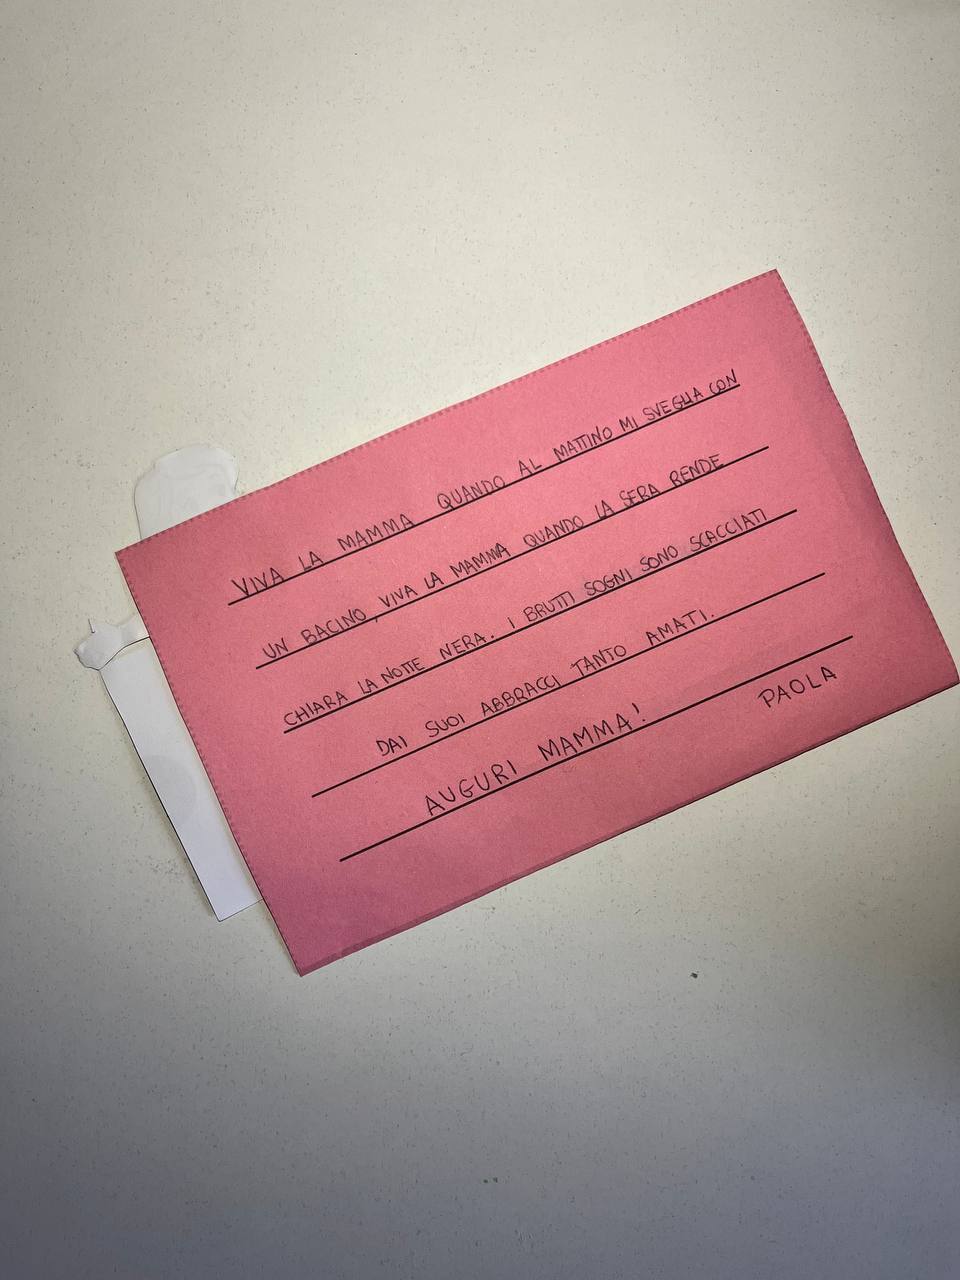 VIVA LA MAMMA QUANDO AL MATTINO MI SVEGLIA CON
UN BACINO, VIVA LA MAMMA QUANDO LA SERA RENDE
CHIARA LA NOTTE NERA. I BRUTTI SOGNI SONO SCACCIATI
DAI SUOI ABBRACCI TANTO AMATI.
AUGURI MAMMA!
PAOLA